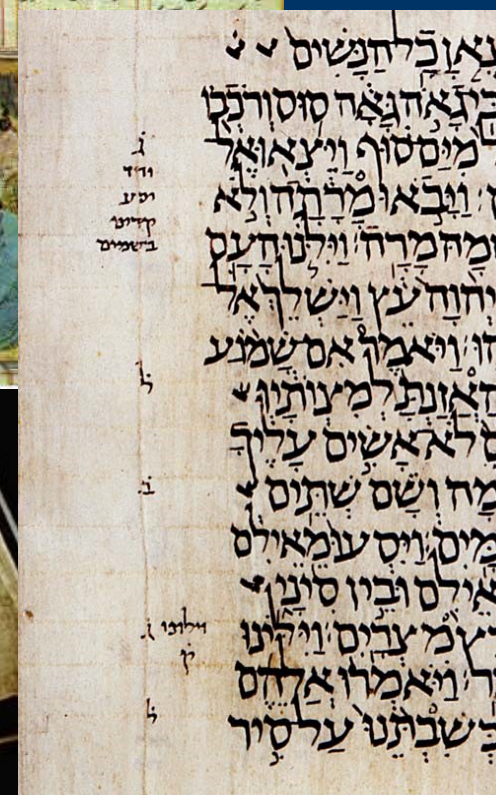 צאן כל הנשים
כי גאה גאה סוס ורכבו
מים סוף ויצאו אל
ג
ויבאו מרתה ולא
מה מרה וילנו העם
בשמים
יהוה עץ וישלך אל
הו ויאמר אם שמוע
ל
האזנת למצותיו
לא אשים עליך
ב
מה ושם שתים
מים ויסעו מאילם
אילם ובין סיני
רץ מצרים וילינו
וילונו
ק
ר ויאמרו אלהם
ל
בשבתנו על סיר